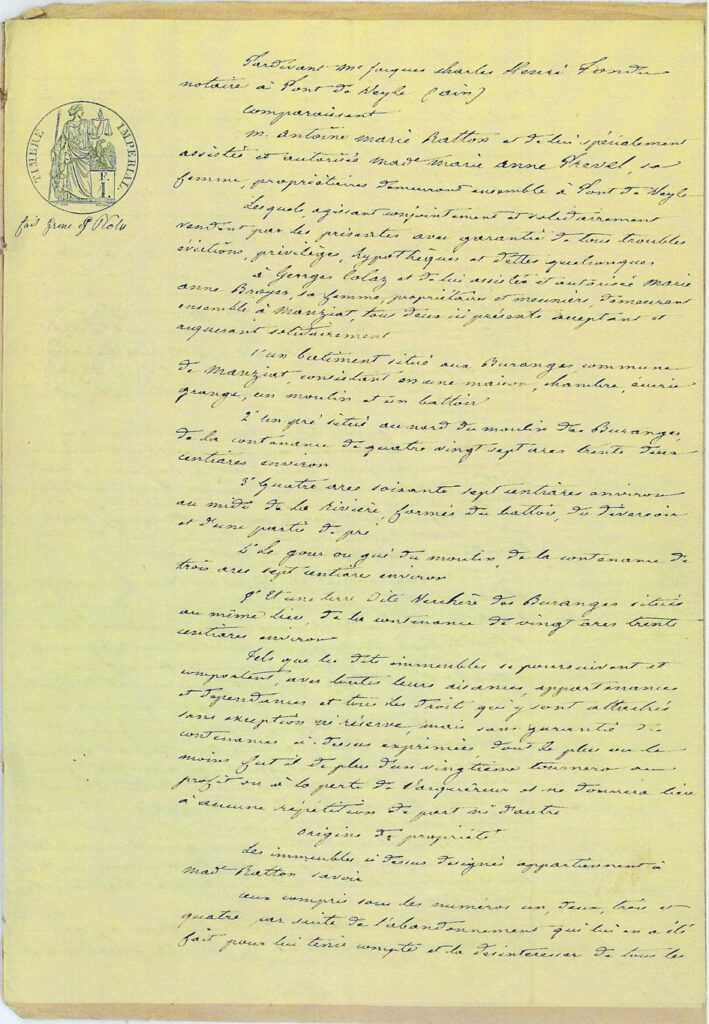 Pardevant Me Jacques Charles Henri
notaire à Pont de Veyle (Ain)
comparaissent
TIMBRE IMPÉRIAL
M. Antoine Marie Ratton et de lui spécialement
assistée et autorisée Made Marie Anne Prevel, sa
femme, propriétaires demeurant ensemble à Pont de Veyle
Lesquels, agissant conjointement et solidairement
vendent par les présentes avec garantie de tous troubles
évictions, privilèges, hypothèques et dettes quelconques
à Georges Colaz et de lui assistée et autorisée Marie
Anne Broyer, sa femme, propriétaires et meuniers, demeurant
ensemble à Manziat, tous deux ici présents acceptant et
aquerant solidairement
1° un batiment situé aux Buranges, commune
de Manziat, consistant en une maison, chambre, écurie
grange, un moulin et un battoir
2° Un pré situé au nord du moulin des Buranges,
de la contenance de quatre vingt sept ares trente deux
centiares environ
3° Quatre ares soixante sept centiares environ
au midi de la rivière, formés du battoir, du déversoir
et d'une partie de pré
4° Le gour ou gué du moulin, de la contenance de
trois ares sept centiare environ
5° Et une terre dite Verchère des Buranges située
au même lieu, de la contenance de vingt ares trente
centiares environ
Tels que les dits immeubles se poursuivent et
comportent, avec toutes leurs aisances, appartenances
et dépendances et tous les droit qui y sont attachés
sans exception ni réserve, mais sans garantie des
contenances ci dessus exprimées, dont le plus ou le
moins fut il de plus d'un vingtième tournera au
profit ou à la perte de l'acquéreur et ne donnera lieu
à aucune répétition de part ni d'autre
Origine de propriété
Les immeubles ci dessus désignés appartiennent à
Made Ratton savoir
ceux compris sous les numéros un deux, trois et
quatre par suite de l'abandonnement qui lui en a été
fait pour lui tenir compte et la désintéresser de tous les